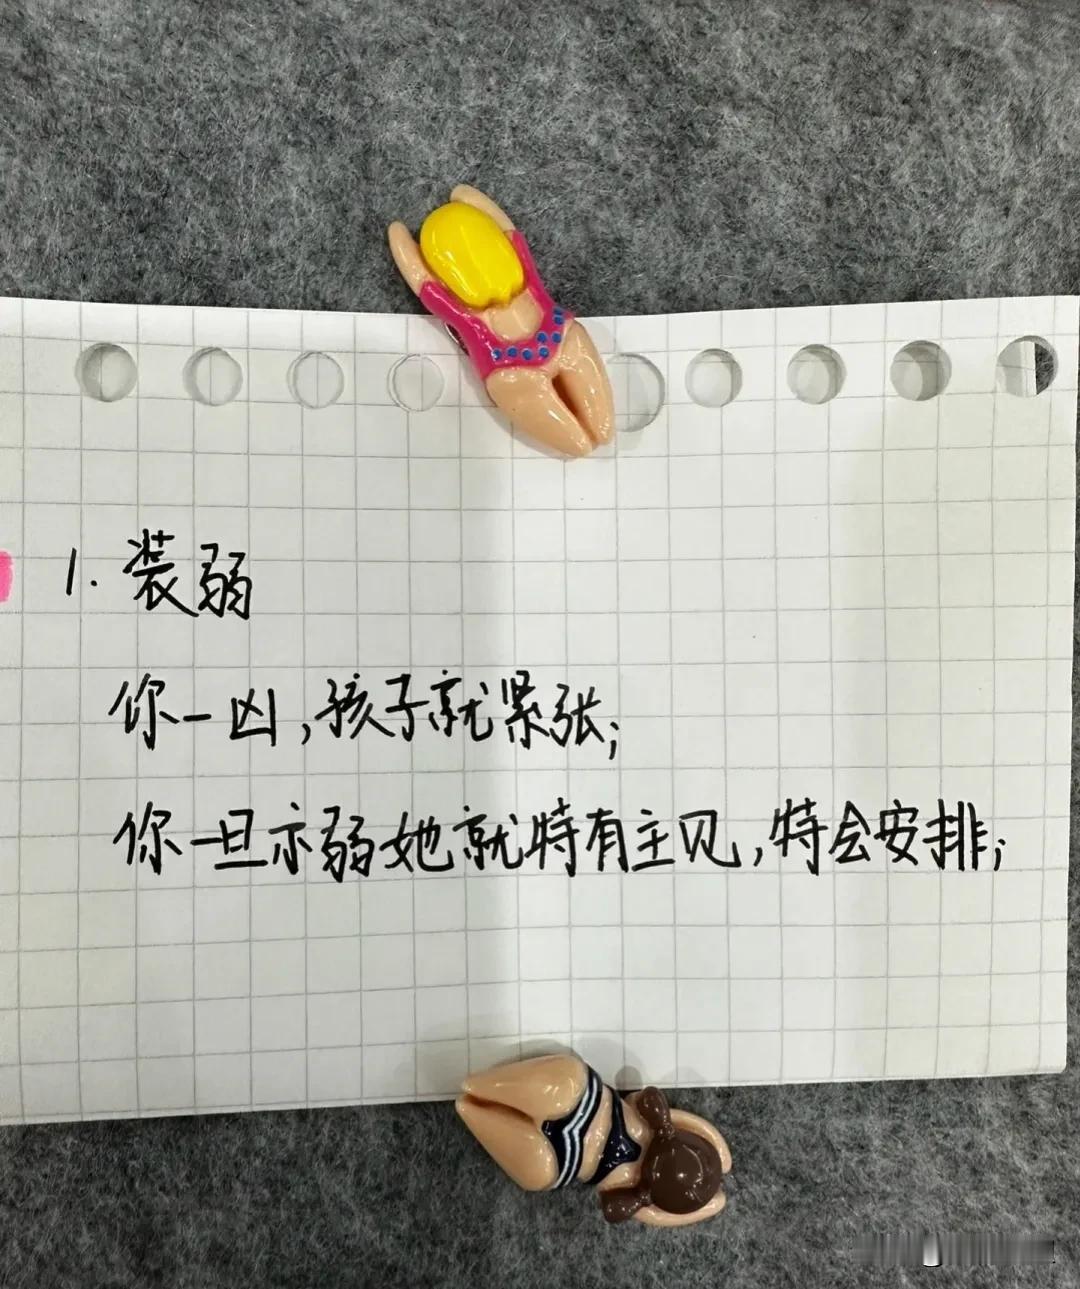 1. 装弱
你一凶,孩子就紧张;
你一旦示弱她就特有主见,特会安排;